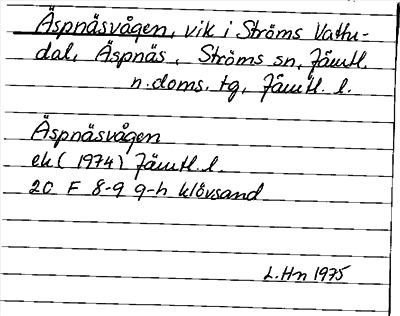 Äspnäsvågen, vik i Ströms Vattu-
dal, Äspnäs, Ströms sn, Jämtl.
n.doms. tg, Jämtl. l.
Äspnäsvågen
ek (1974) Jämtl. l.
20 F 8-9 g-h klövsand
L.Hn 1975